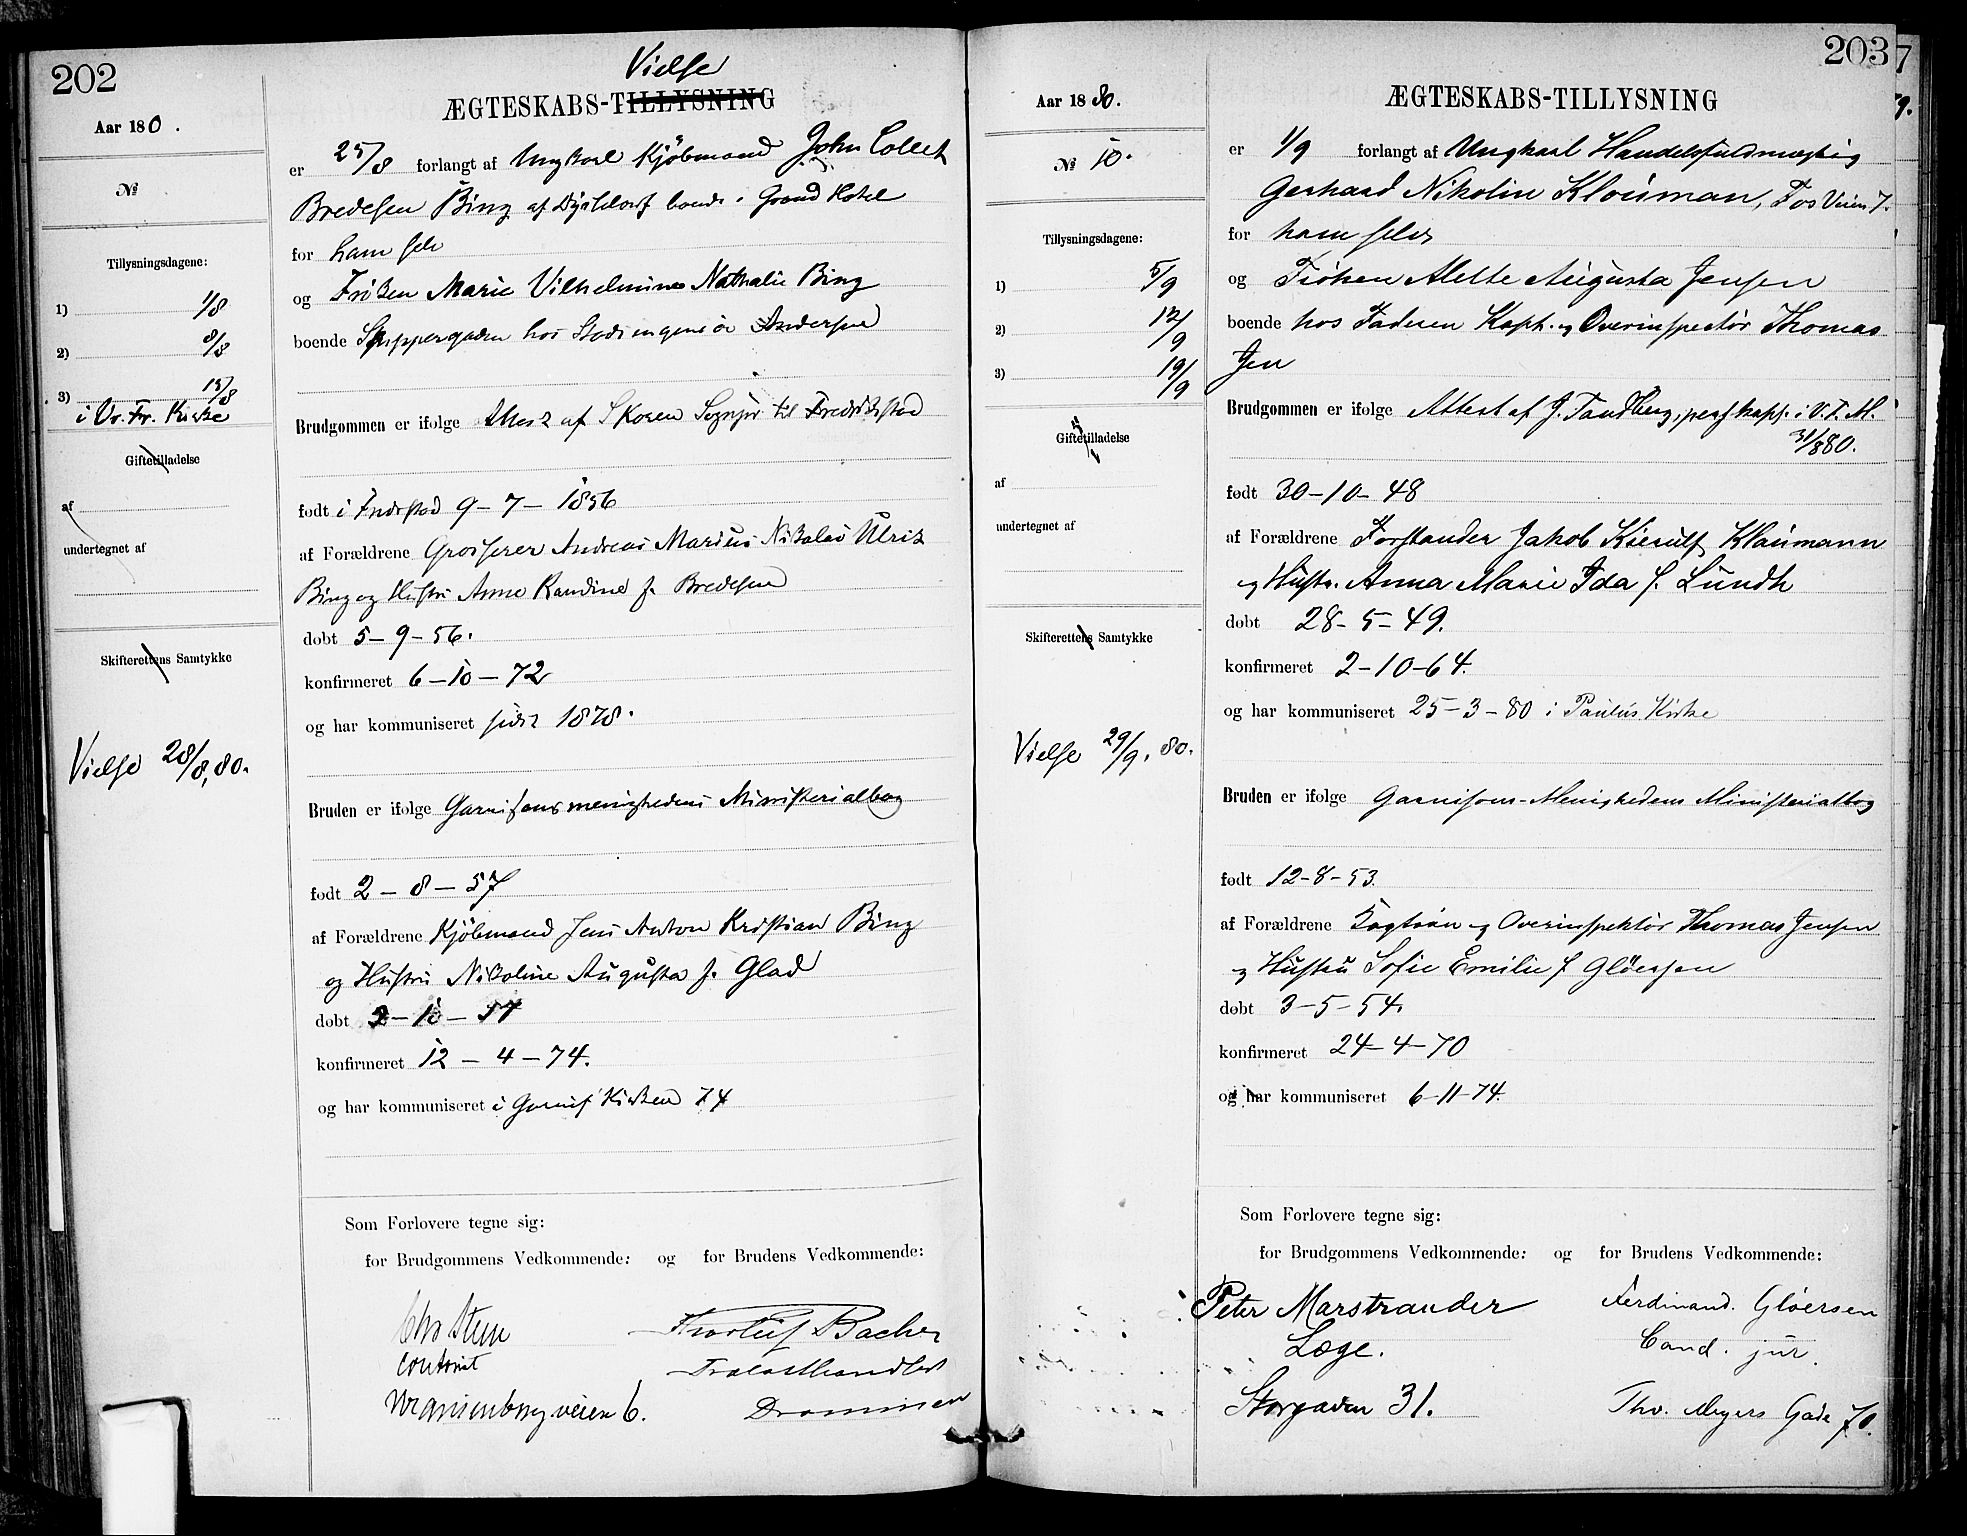 202
Aar 180.
№
Tillysningsdagene:
1) 1/8
2) 8/8
3) 15/8
i Vr. Fr. Kirke
Giftetilladelse
af
undertegnet af
Skifterettens Samtykke
Vielse 28/8, 80.
Vielse
ÆGTESKABS-TILLYSNING
er 25/8 forlangt af Ungkarl Kjøbmand John Collet
Bredesen Bing af boende i Grand Hotel
for ham selv
og Frøken Marie Vilhelmine Nathalie Bing
boende Skippergaden hos Stadsingeniør Andersen
Brudgommen er ifølge Attest af Sognepr til Fredrikstad
født i Fredrstad 9-7-1856
af Forældrene Grosserer Andreas Marius Nikolai Ulrik
Bing og Hustru Anne Randine f. Bredesen
døbt 5-9-56.
konfirmeret 6-10-72
og har kommuniseret sidst 1878.
Bruden er ifølge Garnisonsmenighedens Ministerialbog
født 2-8-57
af Forældrene Kjøbmand Jens Anton Kristian Bing
og Hustru Nikoline Augusta f. Glad
døbt 2-10-57
konfirmeret 12-4-74.
og har kommuniseret i Garnis Kirken 74
Som Forlovere tegne sig:
for Brudgommens Vedkommende: og for Brudens Vedkommende:
Chr Steen Thorleif Bacher
Contorist Trælasthandler
Uranienborgveien 6. Drammen
203
Aar 1880.
№ 10.
Tillysningsdagene:
1) 5/9
2) 12/9
3) 19/9
Giftetilladelse
af
undertegnet af
Skifterettens Samtykke
Vielse 29/9. 80.
ÆGTESKABS-TILLYSNING
er 1/9 forlangt af Ungkarl Handelsfuldmægtig
Gerhard Nikolin Klouman, Fos Veien 7.
for ham selv
og Frøken Alette Augusta Jensen
boende hos Faderen Kapt. og Overinspectør Thomas
Jen
Brudgommen er ifølge Attest af J. Tandberg, pers. kapp. i V. F. M.
31/880.
født 30-10-48
af Forældrene Forstander Jakob Kierulf Klaumann
og Hustr. Anna Marie Ida f. Lundh
døbt 28-5-49.
konfirmeret 2-10-64.
og har kommuniseret 25-3-80 i Paulus Kirke
Bruden er ifølge Garnisons-Menighedens Ministerialbog
født 12-8-53.
af Forældrene Kaptein og Overinspektør Thomas Jensen
og Hustru Sofie Emilie f Gløersen
døbt 3-5-54.
konfirmeret 24-4-70
og har kommuniseret 6-11-74.
Som Forlovere tegne sig:
for Brudgommens Vedkommende: og for Brudens Vedkommende:
Peter Marstrander Ferdinand. Gløersen
Læge. Cand. jur.
Storgaden 31. Thv. Meyers Gade 70.